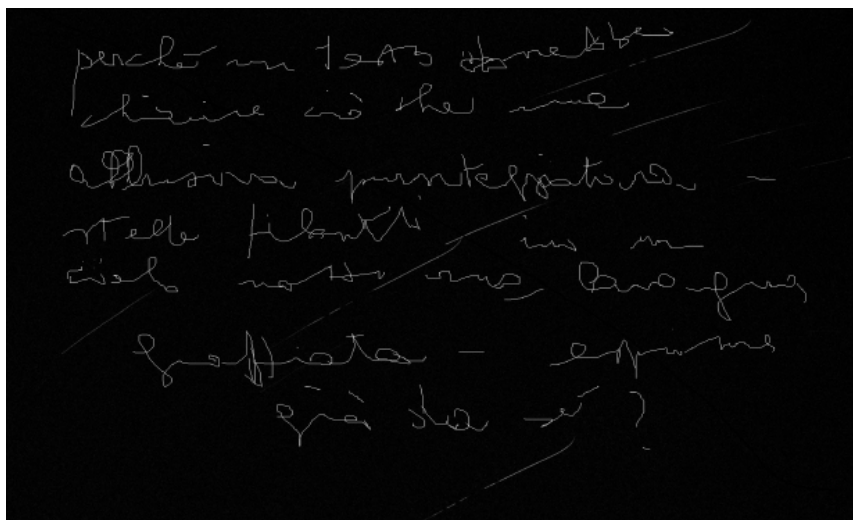 perché un testo dovrebbe
chiarire ciò che una
allusiva punteggiatura –
stelle filanti in un
cielo notturno, lavagna
graffiata – esprime
già da sé?